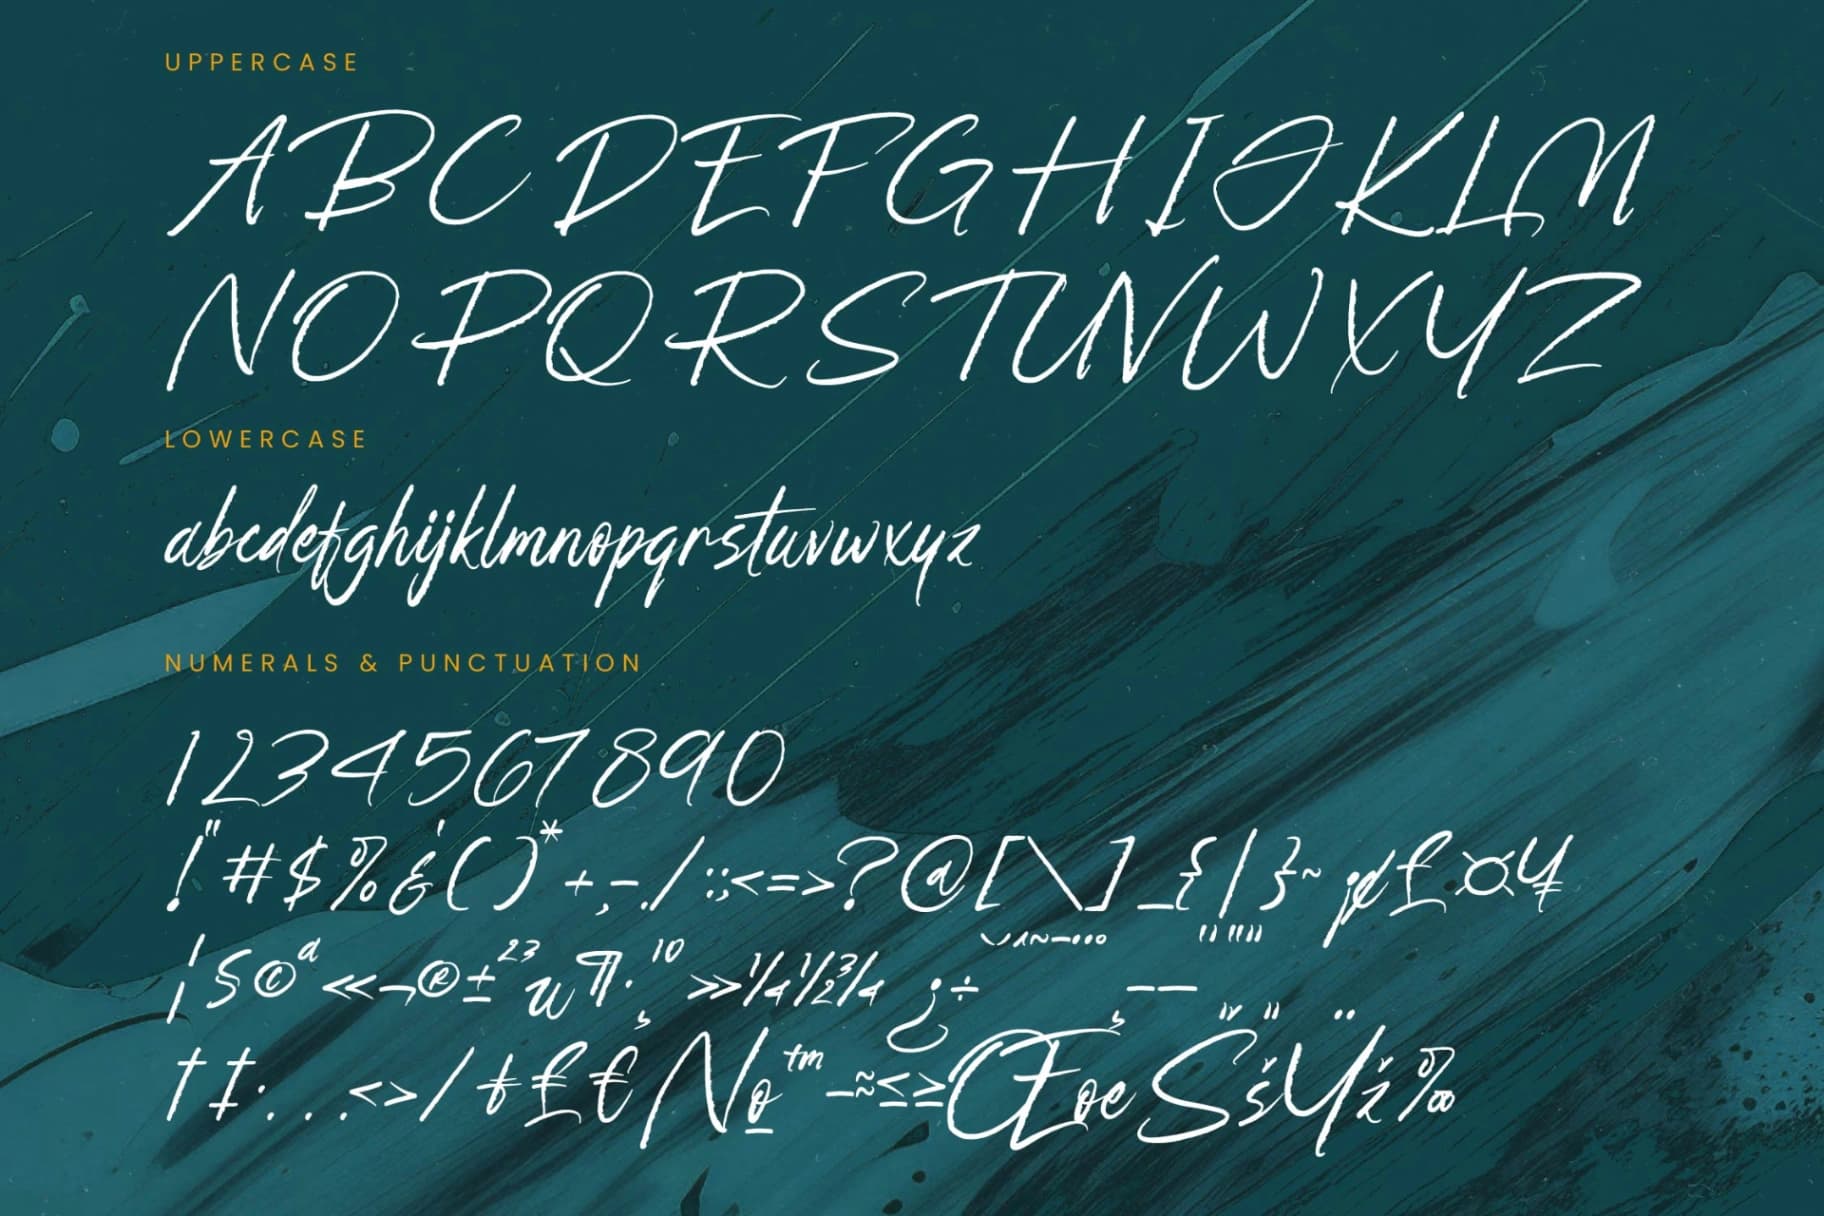 UPPERCASE
ABCDEFGHIJKLM
NOPQRSTUVWXYZ
LOWERCASE
abcdefghijklmnopqrstuvwxyz
NUMERALS & PUNCTUATION
1234567890
!"#$%&'()*+,-./:;<=>?@[\]_{|}~¢£¤¥
¦§©ª«¬®±²³µ¶·¸¹º»¼½¾¿÷
†‡•...‹›⁄₺₤€№™−≈≤≥ŒœŠšŸž‰